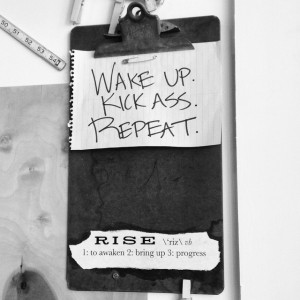 50 51 52 53 54
WAKE UP.
KICK ASS.
REPEAT.
RISE \'rīz\ vb
1: to awaken 2: bring up 3: progress